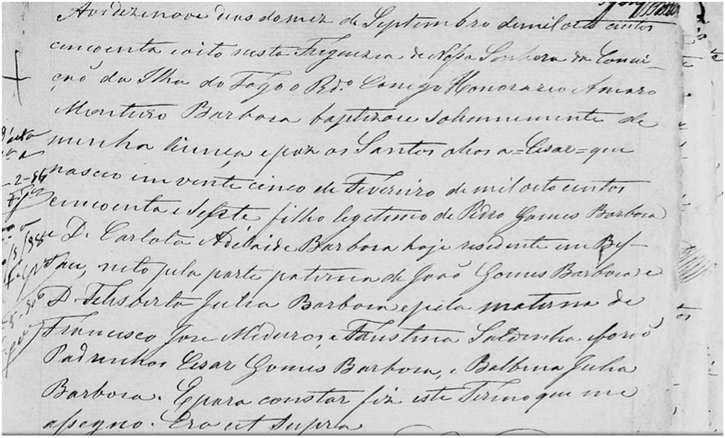 Aos dezenove dias do mez de Septembro de mil oito centos
cincoenta e oito nesta Freguezia de Nossa Senhora da Concei-
çaõ da Ilha do Fogo o Rdo. Conego Honorario Amaro
Monteiro Barbosa baptizou solemnemente de
minha licença e poz os Santos oleos a=Cesar=que
nasceo em vente cinco de Fevereiro de mil oito centos
cincoenta e sepste filho legetimo de Pedro Gomes Barbosa
e D. Carlota Adelaide Barbosa hoje residente em Bis-
sau, neto pela parte paterna de Joaõ Gomes Barbosa e
D. Felisberta Julia Barbosa e pela materna de
Francisco Jose Medeiros e Faustina Saldinha. Foraõ
Padrinhos Cesar Gomes Barbosa, e Balbina Julia
Barbosa. E para constar fiz este Termo que me
assegno. Era ut supra